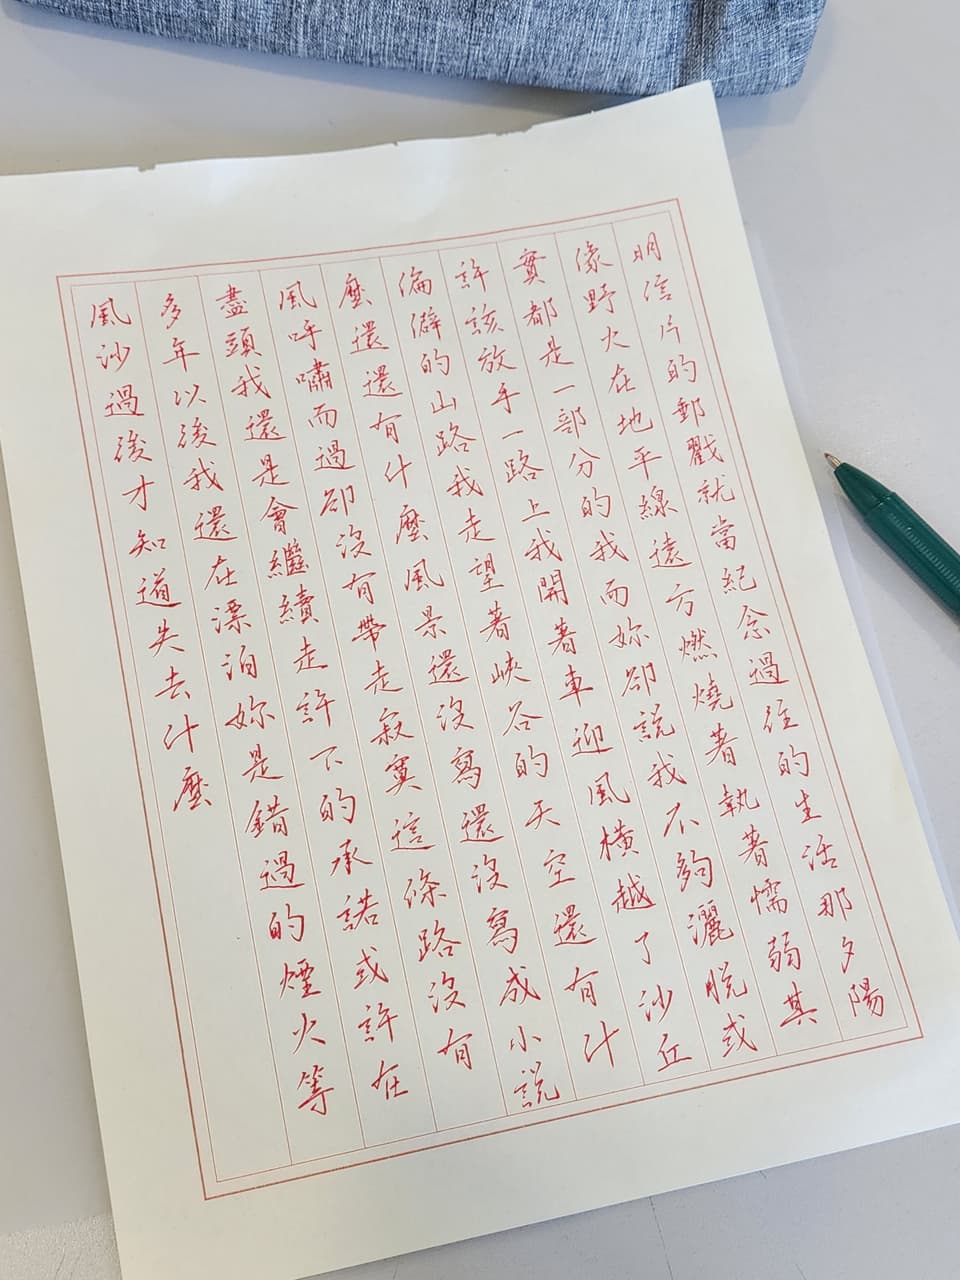 明信片的郵戳就當紀念過往的生活那夕陽
像野火在地平線遠方燃燒著執著懦弱其
實都是一部分的我而妳卻說我不夠灑脫或
許該放手一路上我開著車迎風橫越了沙丘
偏僻的山路我走望著峽谷的天空還有什
麼還還有什麼風景還沒寫還沒寫成小說
風呼嘯而過卻沒有帶走寂寞這條路沒有
盡頭我還是會繼續走許下的承諾或許在
多年以後我還在漂泊妳是錯過的煙火等
風沙過後才知道失去什麼